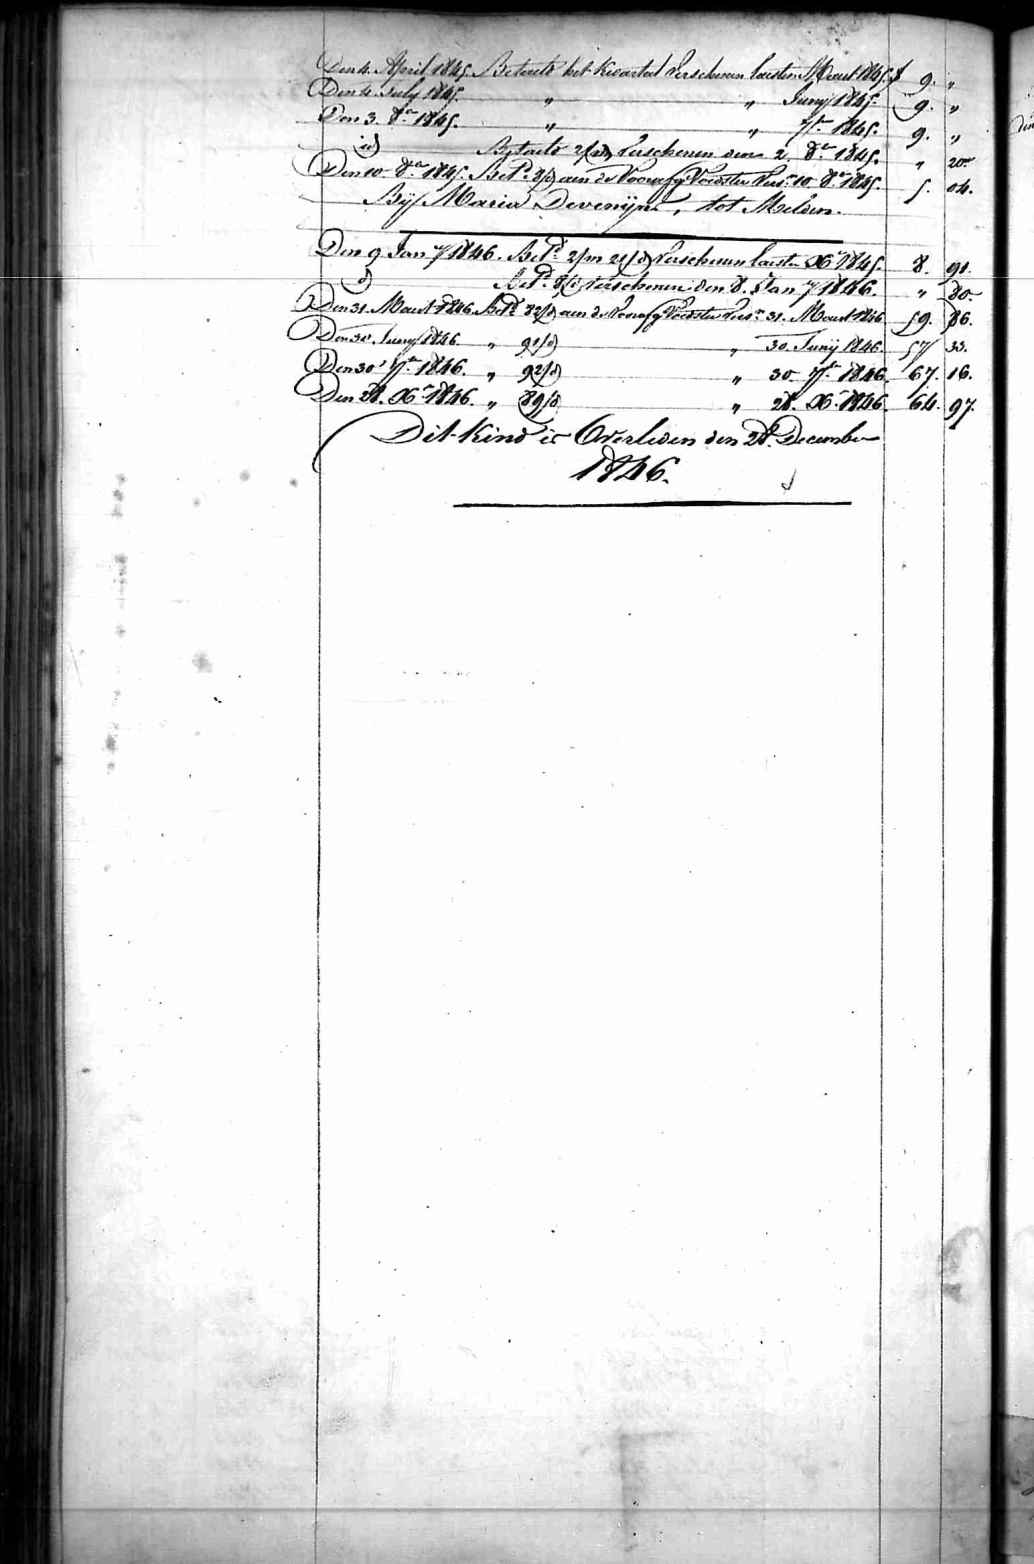 Den 4. April 1845. Betaald het kwartaal verschenen laatsten Maart 1845. f 9. „
Den 4. July 1845. „ „ Juny 1845. 9. „
Den 3. 8br 1845. „ „ 7br 1845. 9. „
id Betaald 2/d verschenen den 2. 8br 1845. „ 20
Den 10. 8br 1845. Betd 8/d aan de Voorafg Voedster Vers. 10. 8br 1845. 5. 04.
Bij Maria Devenijns, tot Melden.
Den 9 Jany 1846. Betd 2/m 21/d verschenen laatsten Xbr 1845. 8. 91.
d Betd 8/d verschenen den 8. Jany 1846. „ 80.
Den 31. Maart 1846. Betd 82/d aan de Voorafg Voedster Vers. 31. Maart 1846 59. 86.
Den 30 Juny 1846 „ 91/d „ 30. Junij 1846. 57 33.
Den 30 7br 1846. „ 92/d „ 30. 7br 1846. 67. 16.
Den 28. Xbr 1846. „ 89/d „ 28. Xbr 1846. 64. 97.
Dit kind is Overleden den 28. December
1846.